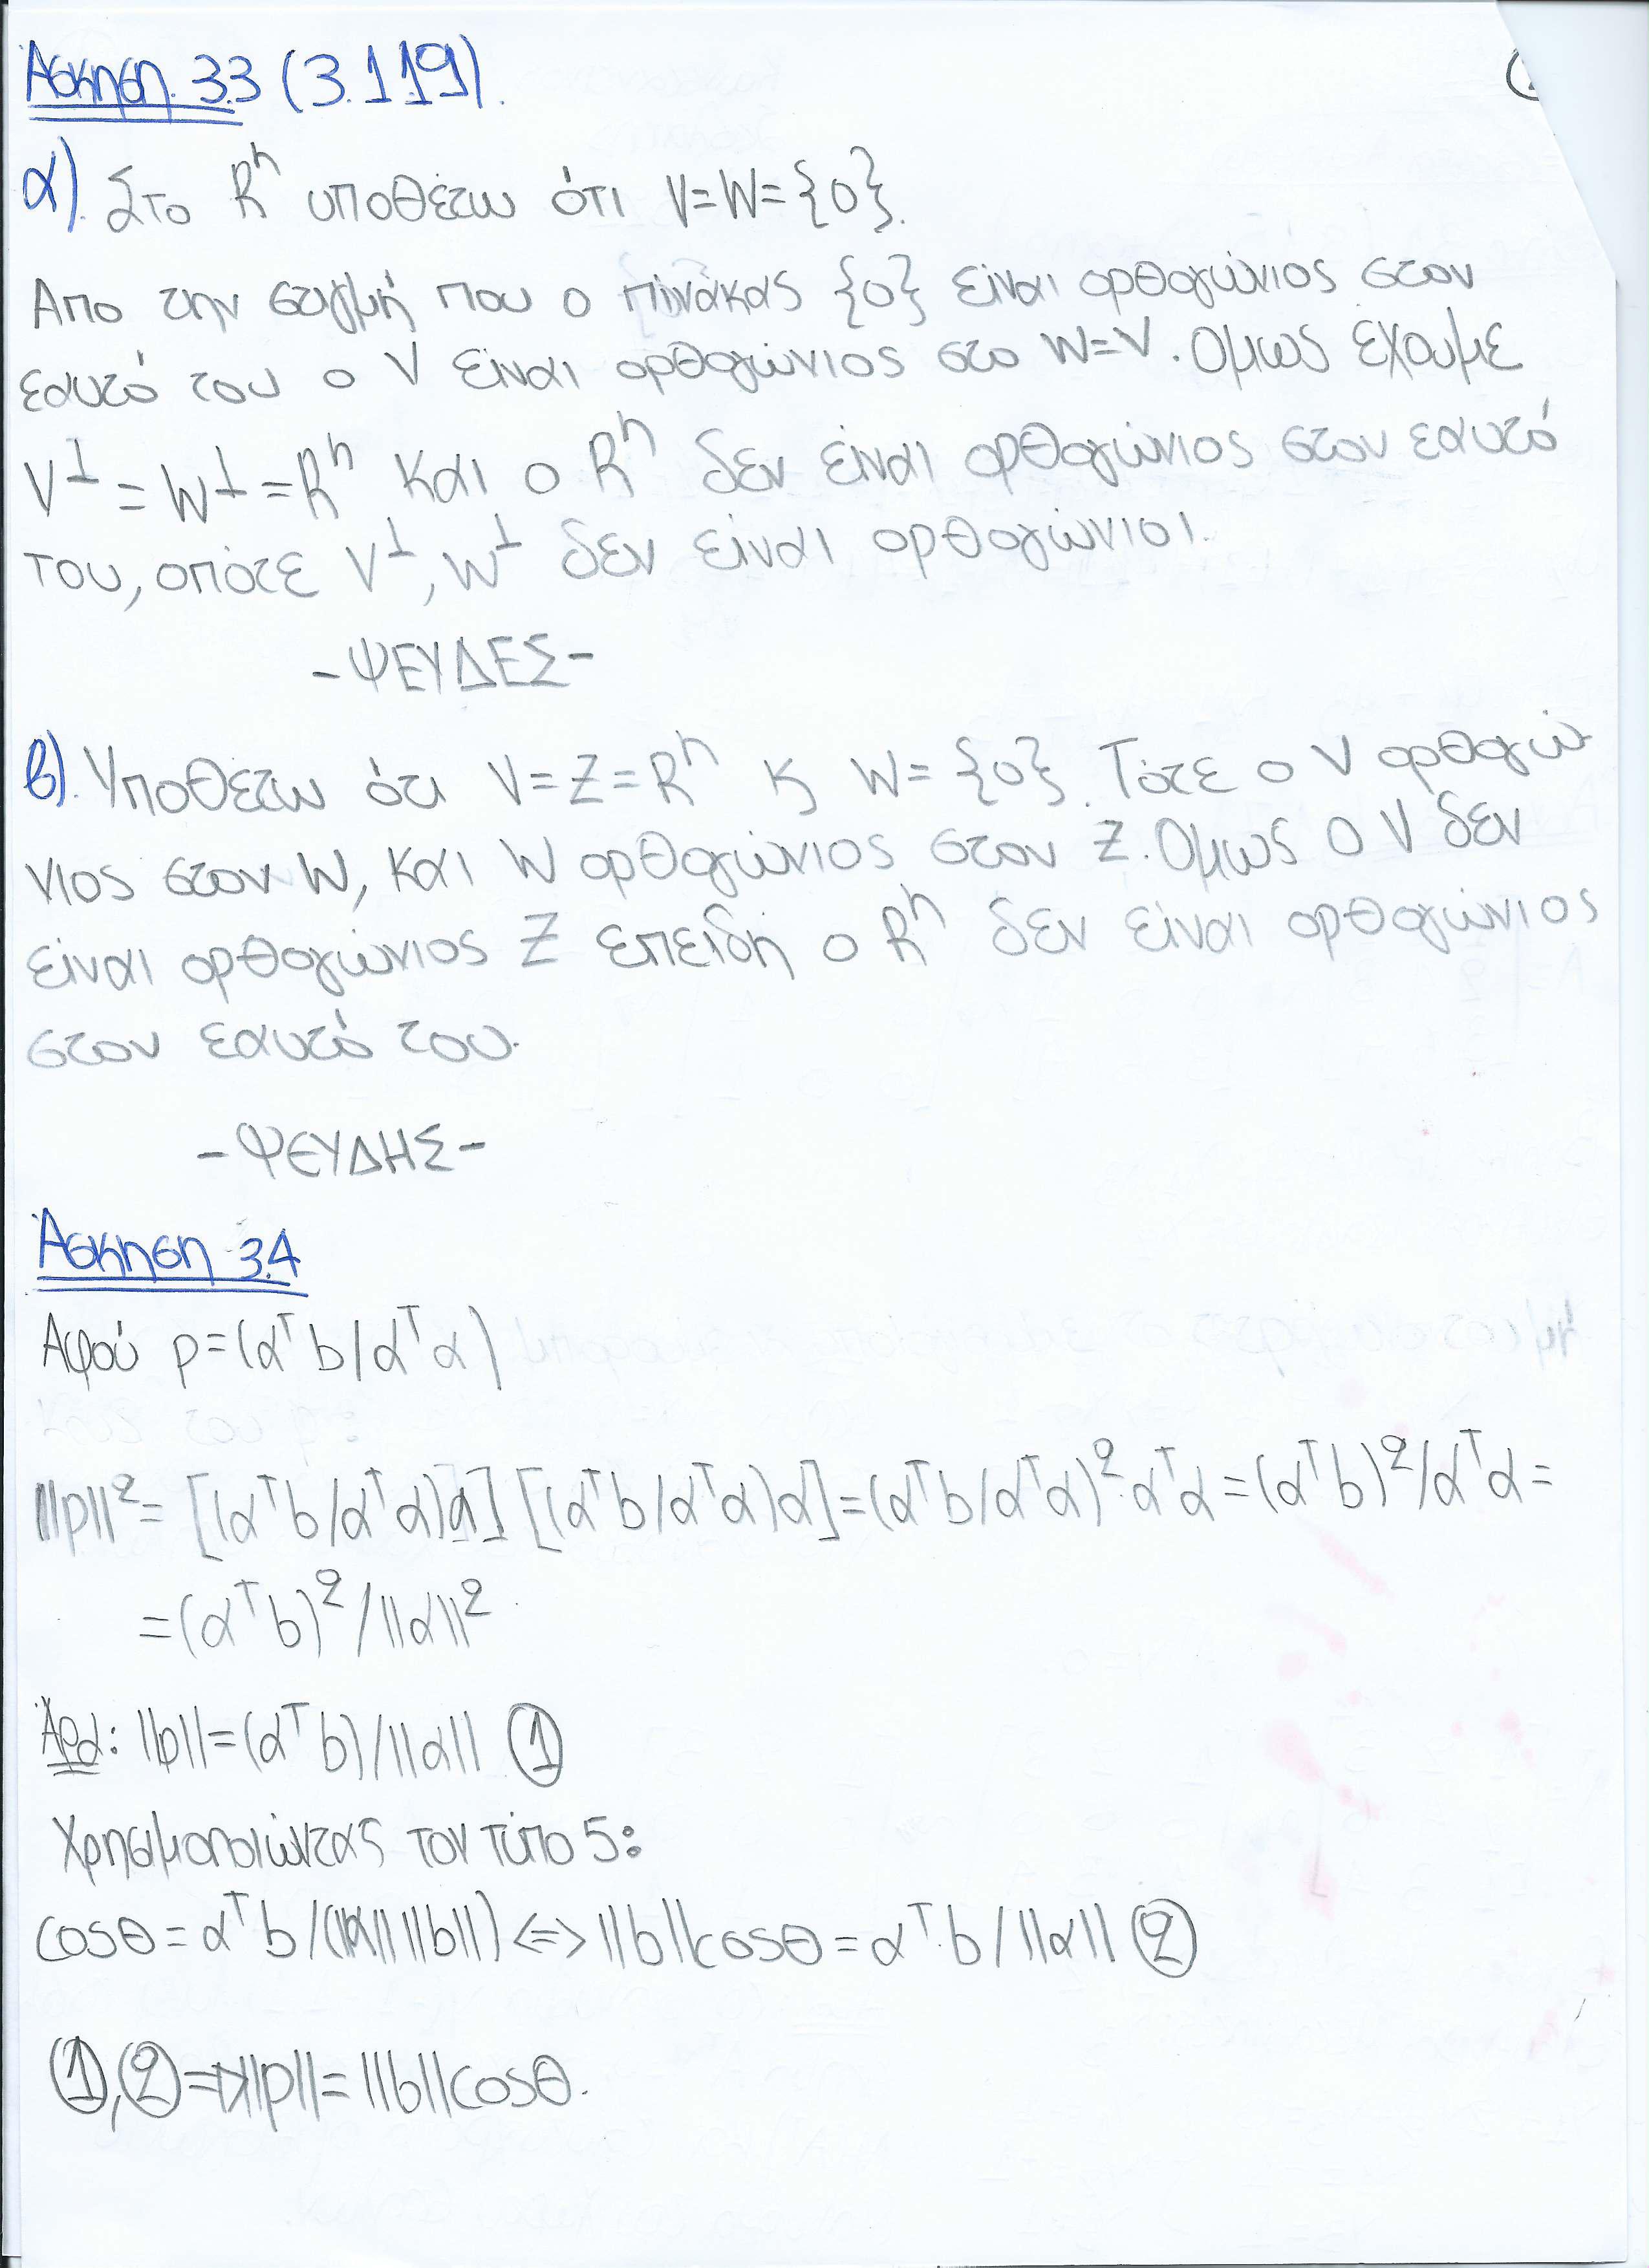 Άσκηση 3.3 (3.1.19).
α). Στο Rⁿ υποθέτω ότι V=W={0}.
Απο την στιγμή που ο πίνακας {0} είναι ορθογώνιος στον
εαυτό του ο V είναι ορθογώνιος στο W=V. Ομως έχουμε
V⊥ = W⊥ = Rⁿ και ο Rⁿ δεν είναι ορθογώνιος στον εαυτό
του, οπότε V⊥, W⊥ δεν είναι ορθογώνιοι.
-ΨΕΥΔΕΣ-
β). Υποθέτω ότι V=Z=Rⁿ ϗ W={0}. Τότε ο V ορθογώ-
νιος στον W, και W ορθογώνιος στον Z. Ομως ο V δεν
είναι ορθογώνιος Z επειδη ο Rⁿ δεν είναι ορθογώνιος
στον εαυτό του.
-ΨΕΥΔΗΣ-
Άσκηση 3.4
Αφού p=(αᵀb/αᵀα)
||p||²= [(αᵀb/αᵀα)α] [(αᵀb/αᵀα)α]=(αᵀb/αᵀα)²·αᵀα=(αᵀb)²/αᵀα=
=(αᵀb)²/||α||²
Άρα: ||p||=(αᵀb)/||α|| ①
Χρησιμοποιώντας τον τύπο 5:
cosθ=αᵀb/(||α|| ||b||) <=> ||b||cosθ=αᵀ·b/||α|| ②
①,② => ||p||=||b||cosθ.